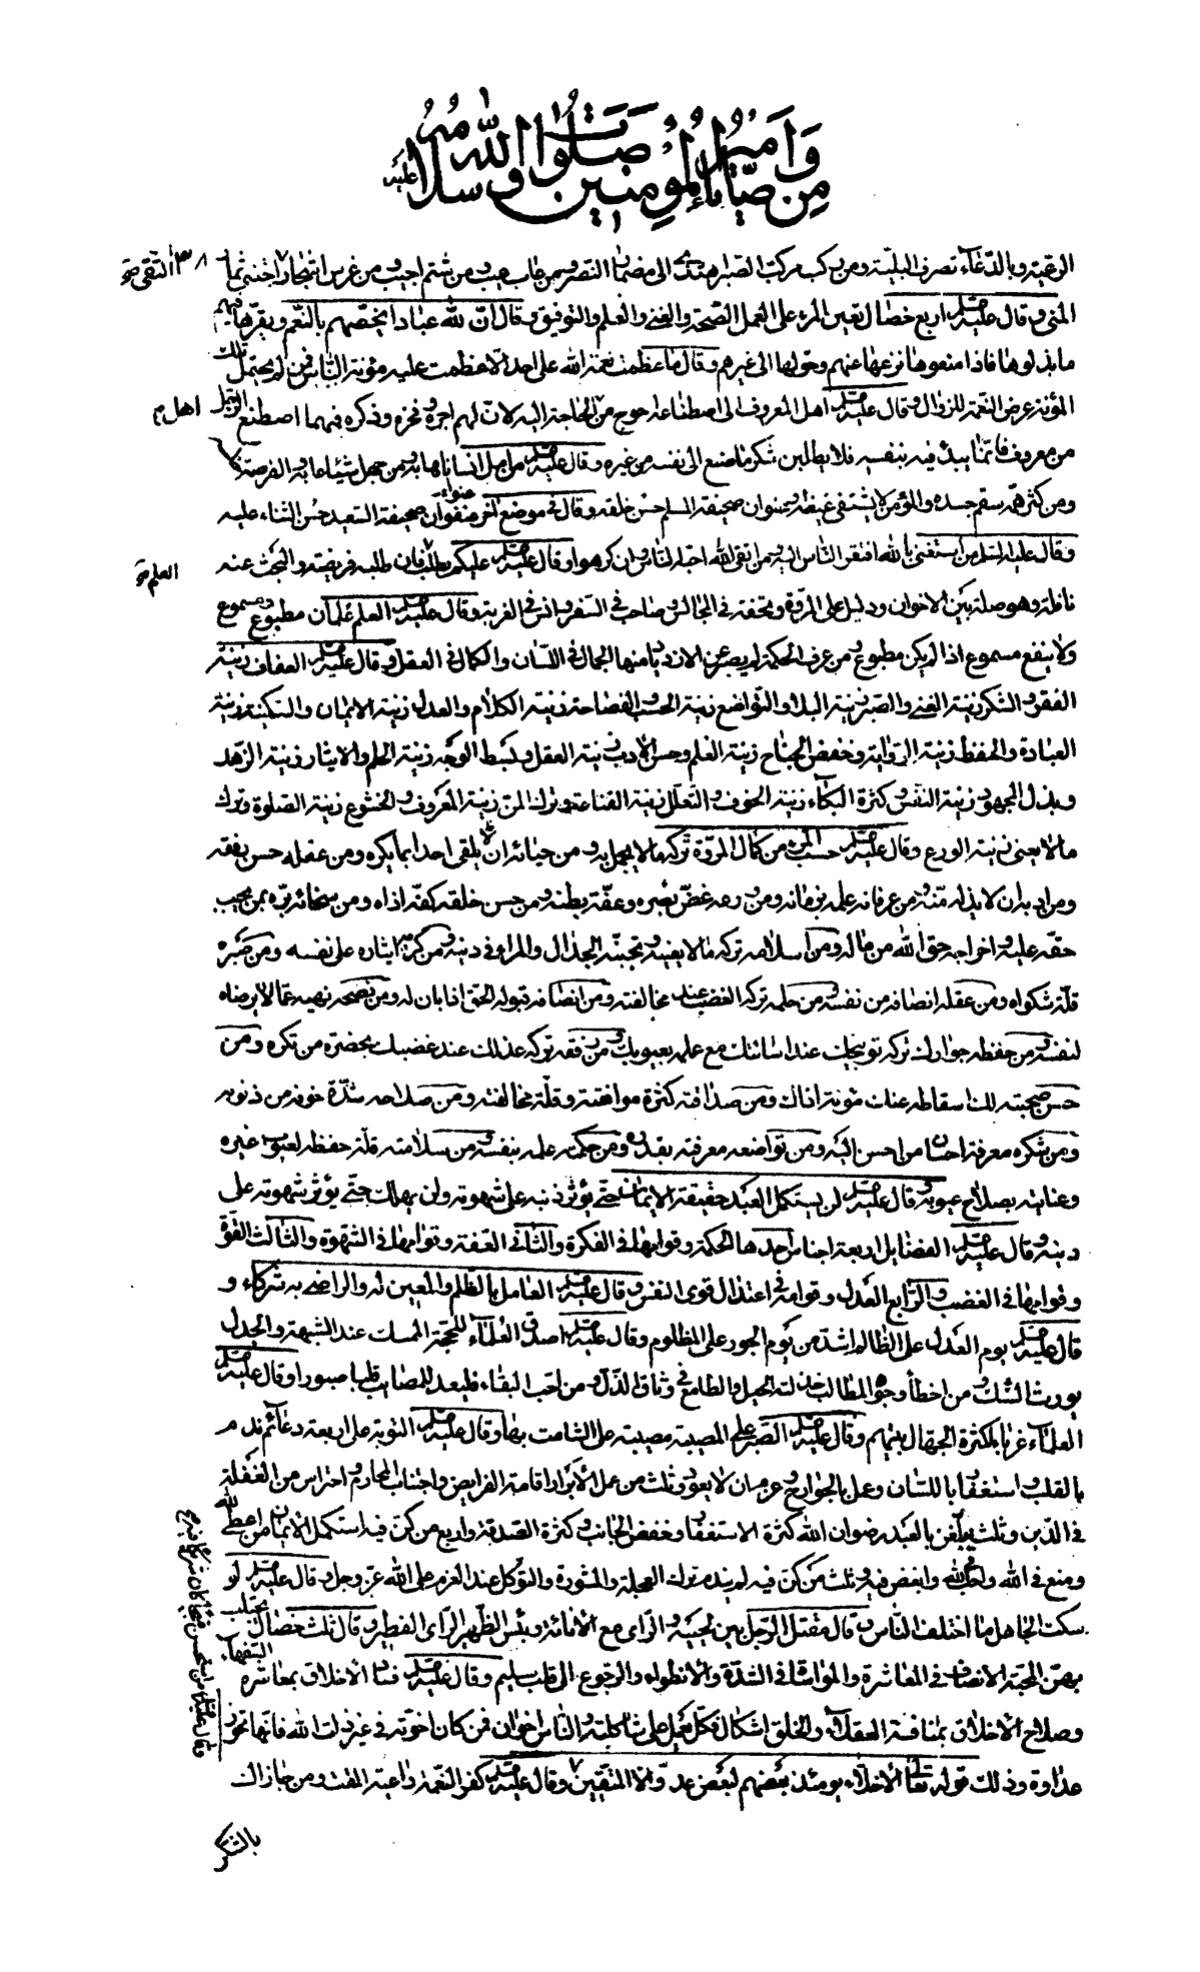 من وصايا أمير المؤمنين صلوات الله وسلامه عليه
الرعية وبالدعاء تصرف البلية ومن ركب مركب الصبر اهتدى الى مضمار النصر ومن عاب عيب ومن شتم اجيب ومن غرس اشجار اجتنى ثمار
المنى وقال عليه السلم اربع خصال تعين المرء على العمل الصحة والغنى والعلم والتوفيق وقال ان لله عبادا يخصهم بالنعم ويقرها فيهم
ما بذلوها فاذا منعوها نزعها عنهم وحولها الى غيرهم وقال ما عظمت نعمة الله على احد الا عظمت عليه مؤنة الناس فمن لم يحتمل تلك
المؤنة عرض النعمة للزوال وقال عليه السلم اهل المعروف الى اصطناعه احوج من اهل الحاجة اليه لان لهم اجره وفخره وذكره فمهما اصطنع الرجل
من معروف فانما يبدأ فيه بنفسه فلا يطلبن شكر ما صنع الى نفسه من غيره وقال عليه السلم من امل انسانا هابه ومن جهل شيئا عابه والفرصة
ومن كثر همه سقم جسده والمؤمن لا يشتفى غيظه وعنوان صحيفة المسلم حسن خلقه وقال فى موضع اخر عنوان صحيفة السعيد حسن الثناء عليه
وقال عليه السلم من استغنى بالله افتقر الناس اليه ومن اتقى الله احبه الناس وان كرهوا وقال عليه السلم عليكم بطلب العلم فان طلبه فريضة والبحث عنه
نافلة وهو صلة بين الاخوان ودليل على المروة وتحفة فى المجالس وصاحب فى السفر وانس فى الغربة وقال عليه السلم العلم علمان مطبوع ومسموع
ولا ينفع مسموع اذا لم يكن مطبوع ومن عرف الحكمة لم يصبر عن الازدياد منها الجمال فى اللسان والكمال فى العقل وقال عليه السلم العفاف زينة
الفقر والشكر زينة الغنى والصبر زينة البلاء والتواضع زينة الحسب والفصاحة زينة الكلام والعدل زينة الايمان والسكينة زينة
العبادة والحفظ زينة الرواية وخفض الجناح زينة العلم وحسن الادب زينة العقل وبسط الوجه زينة الحلم والايثار زينة الزهد
وبذل المجهود زينة النفس وكثرة البكاء زينة الخوف والتقلل زينة القناعة وترك المن زينة المعروف والخشوع زينة الصلوة وترك
ما لا يعنى زينة الورع وقال عليه السلم حسب المرء من كمال المروة تركه ما لا يجمل به ومن حيائه ان لا يلقى احدا بما يكره ومن عقله حسن رفقه
ومن ادبه ان لا يترك ما لا بد له منه ومن عرفانه علمه بزمانه ومن ورعه غض بصره وعفة بطنه ومن حسن خلقه كفه اذاه ومن سخائه بره بمن يجب
حقه عليه واخراجه حق الله من ماله ومن اسلامه تركه ما لا يعنيه وتجنبه الجدال والمراء فى دينه ومن كرمه ايثاره على نفسه ومن صبره
قلة شكواه ومن عقله انصافه من نفسه ومن حلمه تركه الغضب عند مخالفته ومن انصافه قبوله الحق اذا بان له ومن نصحه نهيه عما لا يرضاه
لنفسه ومن حفظه جوارك تركه توبيخك عند اسائتك مع علمه بعيوبك ومن رفقه تركه عذلك عند غضبك بحضرة من تكره ومن
حسن صحبته لك اسقاطه عنك مؤنة اذاك ومن صداقته كثرة موافقته وقلة مخالفته ومن صلاحه شدة خوفه من ذنوبه
ومن شكره معرفة احسان من احسن اليه ومن تواضعه معرفته بقدره ومن حكمته علمه بنفسه ومن سلامته قلة حفظه لعيوب غيره
وعنايته بصلاح عيوبه وقال عليه السلم لن يستكمل العبد حقيقة الايمان حتى يؤثر دينه على شهوته ولن يهلك حتى يؤثر شهوته على
دينه وقال عليه السلم الفضايل اربعة اجناس احدها الحكمة وقوامها فى الفكرة والثانى العفة وقوامها فى الشهوة والثالث القوة
وقوامها فى الغضب والرابع العدل وقوامه فى اعتدال قوى النفس وقال عليه السلم العامل بالظلم والمعين له والراضى به شركاء و
قال عليه السلم يوم العدل على الظالم اشد من يوم الجور على المظلوم وقال عليه السلم اقصد العلماء للمحجة الممسك عند الشبهة والجدل
يورث الشك ومن اخطأ وجوه المطالب خذلته الحيل والطامع فى وثاق الذل ومن احب البقاء فليعد للمصائب قلبا صبورا وقال عليه السلم
العلماء غرباء لكثرة الجهال بينهم وقال عليه السلم الصبر على المصيبة مصيبة على الشامت بها وقال عليه السلم التوبة على اربعة دعائم ندم
بالقلب واستغفار باللسان وعمل بالجوارح وعزم ان لا يعود وثلث من عمل الابرار اقامة الفرايض واجتناب المحارم واحتراس من الغفلة
فى الدين وثلث يبلغن بالعبد رضوان الله كثرة الاستغفار وخفض الجانب وكثرة الصدقة واربع من كن فيه استكمل الايمان من اعطى لله
ومنع فى الله واحب لله وابغض فيه وثلث من كن فيه لم يندم ترك العجلة والمشورة والتوكل عند العزم على الله عز وجل وقال عليه السلم لو
سكت الجاهل ما اختلف الناس وقال مقتل الرجل بين لحييه والراى مع الاناة وبئس الظهير الراى الفطير وقال ثلث خصال يجتلب
بهن المحبة الانصاف فى المعاشرة والمواساة فى الشدة والانطواء والرجوع الى قلب سليم وقال عليه السلم فساد الاخلاق بمعاشرة السفهاء
وصلاح الاخلاق بمنافسة العقلاء والخلق اشكال فكل يعمل على شاكلته والناس اخوان فمن كان اخوته فى غير ذات الله فانها تحوز
عداوة وذلك قوله تعالى الاخلاء يومئذ بعضهم لبعض عدو الا المتقين وقال عليه السلم كفر النعمة داعية المقت ومن جازاك
بالشكر
التقى
اهل
العلم
وقال عليه السلم من استحسن قبيحا كان شريكا فيه